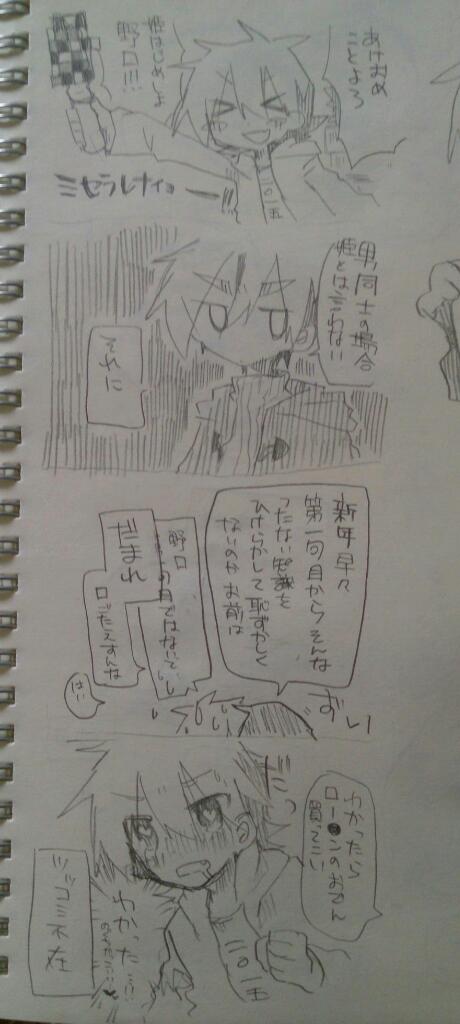 あけおめ
ことよろ
姫はじめしよ
野口!!!
ミセラレナイョー
男同士の場合
姫とは言わない
それに
新年早々
第一回目からそんな
知識を
ひけらかして恥ずかしく
ないのか お前は
おい
野口
だまれ
口ごたえすんな
はい
わかったら
ロー●ンのおでん
買ってこい
わかった…
ツッコミ不在